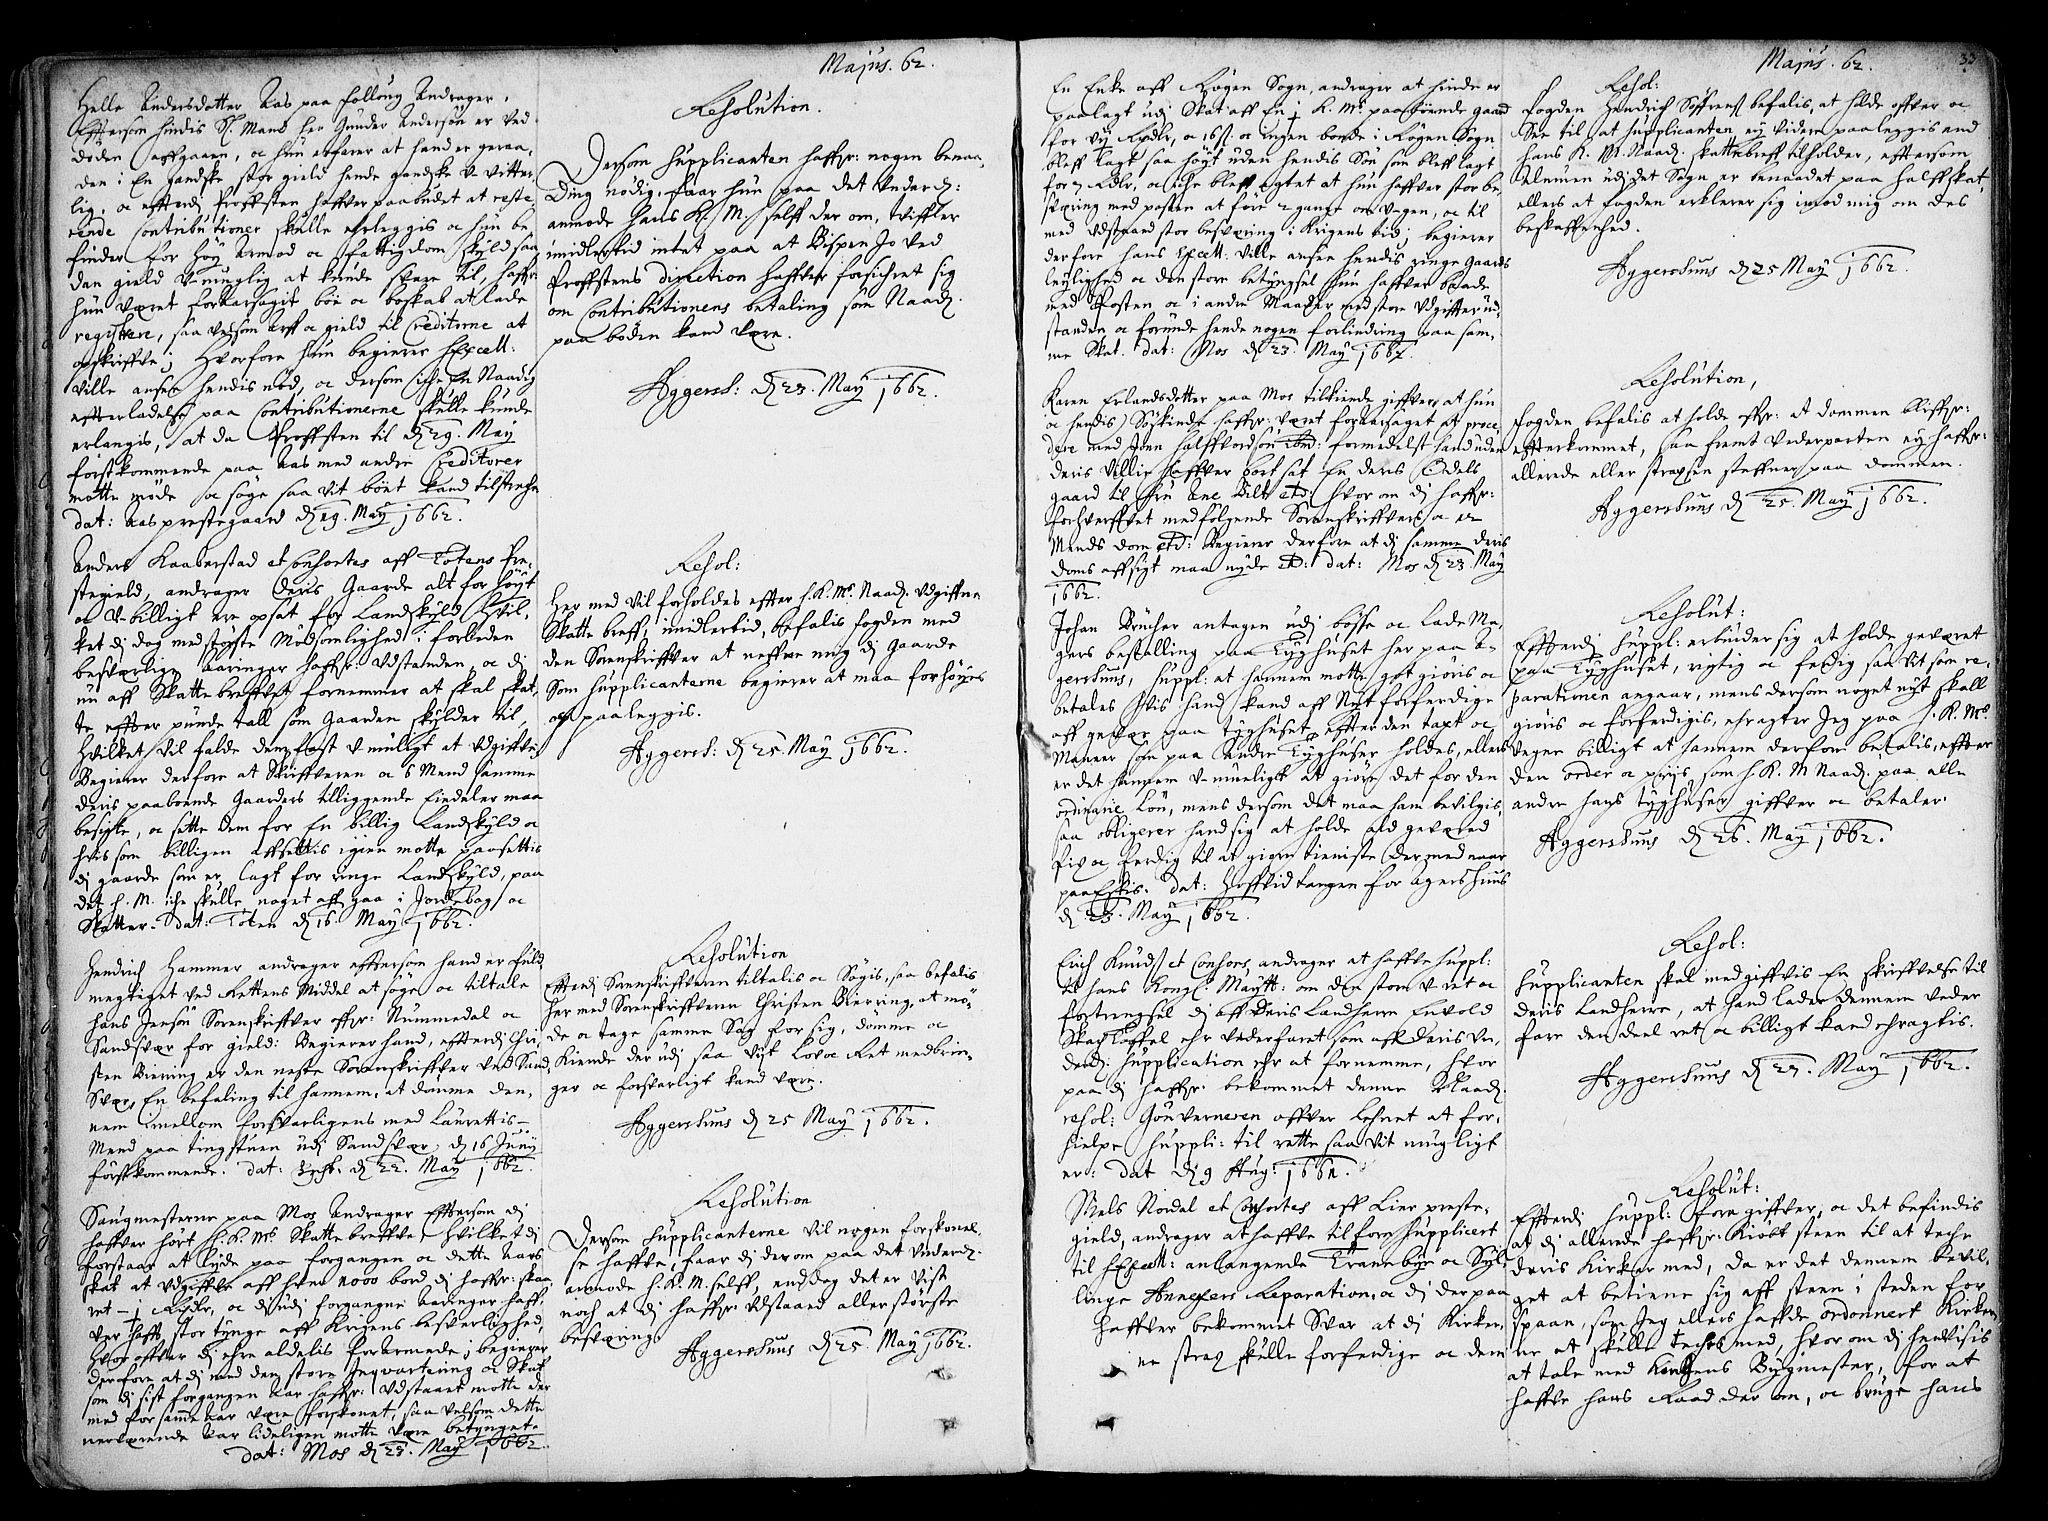 Majus. 62.
Helle Andersdatter Aas paa Folloug Andrager,
Effterson hindis Sl. Mand her Gunder Andersøn er ved
døden affgaaen, oc hun erfarer at hand er geraa,
den i En gandske stor gield hende gandske u-vitter,
lig, oc efftterdj Proffsten haffver paabudet at reste
rende Contributioner skulle erleggis oc hun be,
finder for høy Armod oc fattigdom skyld saa,
dan gield U-muglig at kunde svare til, haffr
hun været foraarsagit bøe oc boskab at lade
registrere, saa velsom arff oc gield til Creditorne at
opskriffve; Hvorfore hun begierer hs Excell:
ville ansee hendis nød, oc dersom iche En Naadig
efterladelse paa Contributionerne skulle kunde
erlangis, at da Proffsten til d 29. May
førstkommende paa Aas med andre Creditorer
motte møde oc søge saa vit boet kand tilstreche
dat: Aas prestegaard d 19. May 1662.
Anders Kaaberstad et Consortes aff Totens Pre,
stegield, andrager deris Gaarde alt for høyt
oc U-billigt ere opsat for Landskyld hvil,
ket dj dog med største Modsomlighed i forleden
besværlige aaringer haffr: udstanden, oc dj
nu aff Skattebreffvet fornemmer at skal skat,
te effter punde tall som Gaarden skylder til,
hvilket vil falde dem fast U-muligt at udgiffve,
Begierer derfore at Skriffveren oc 6 Mend samme
deris paaboende Gaarders tilliggende Eiedeler maa
besigte, oc sette dem for En billig Landskyld oc
hvis som billigen affsettis igien motte paasettis
dj gaarde som er lagt for ringe Landskyld, paa
det h. M. iche skulle noget aff gaa i Jordebog oc
Skatter. Dat: Toten d 16. May 1662.
Hendrich Hammer andrager efftersom hand er fuld,
megtiget ved Rettens Middel at søge oc tiltale
hans Jensøn Sorenskriffver offr: Nummedal oc
Sandsvær for gield: Begierer hand, effterdj Chri,
sten Bierring er den neste Sorenskriffver ved Sand,
Svær, En befaling til hannem, at dømme den,
nem imellom forsvarligens med Laurettis
Mend paa tingstuen udj Sandsvær, d 16 Junij
førstkommende. dat: d 22. May 1662.
Saugmesterne paa Mos Andrager Efftersom dj
haffver hørt h. K. Ms. Skattebreffve, hvilket dj
forstaar at lyde paa forgangen oc dette Aars
skat at udgiffve aff hver 1000 bord dj haffr: skaa,
ret - 1 Rixdlr, oc dj udj forgangne Aaringer haff,
ver hafft stor tynge aff Krigens besverlighed,
hvor offver dj ere aldelis forarmede; begierer
derfore at dj med den store Inqvartering oc Skat
som dj sist forgangen Aar haffr: udstaaet motte der
med for samme Aar være forskonet, saa velsom dette
nerværende Aar lideligen motte være betynget.
dat: Mos d 23. May 1662.
Resolution.
Dersom Supplicanten haffr: nogen benaa,
ding nødig, faar hun paa det Underd:
anmode hans K. M. selff der om, tviffler
imidlertid intet paa at Bispen jo ved
Proffstens direction haffver forsichret sig
om Contributionens betaling som Naad.
paa boden kand være.
Aggersh: d 23. May 1662.
Resol:
Her med vil forholdes effter h. K. Ms. Naad. udgiffne
Skattebreff, imidlertid, befalis fogden med
den Sorenskriffver at neffne mig dj Gaarde
Som Supplicanterne begierer at maa forhøyes
oc paaleggis.
Aggersh: d 25 May 1662.
Resolution
Effterdj Sorenskriffveren tiltalis oc Søgis, saa befalis
her med Sorenskriffveren Christen Bierring, at mø,
de oc tage samme Sag for sig, dømme oc
Kiende der udj saa vist Lov oc Ret medbrin,
ger oc forsvarligt kand være.
Aggershuus d 25 May 1662.
Resolution
Dersom Supplicanterne vil nogen forskonel,
se haffve, faar dj derom paa det underd.
anmode h. K. M. selff, end dog det er vist
noch at dj haffr: udstaaed allerstørste
besværing.
Aggershuus d 25. May 1662.
Majus. 62. 33
En Enke aff Røgen Sogn, andrager at hinde er
paalagt udj Skat aff En K. Ms. paaboende gaard
for vij Rixdlr, oc 16 s. oc ingen bonde i Røgen Sogn
bleff lagt saa høyt uden hendis Søn som bleff lagt
for 7 Rdlr, oc iche bleff agtet at hun haffver stor be
sværing med posten at føre 2 gange om Ugen, oc til
med udstaaed stor besværing i Krigens tid; begierer
derfore hans Excell: ville ansee hendis ringe Gaards
leylighed oc den store betyngsel hun haffver baade
med Posten oc i andre Maader med store Udgiffter ud,
standen oc forunde hende nogen forlindring paa sam,
me Skat. dat: Mos d 23. May 1662.
Karen Erlandsdatter paa Mos tilkiende giffver, at hun
oc hendis Søskinde haffr: været foraarsaget at proce,
dere med Joen Halffvordsøn ibid: formedelst hand uden
deris villie haffver bort sat En deris Odels
gaard til fru Ane Bilt etc: hvor om dj haffr:
forhverffvet medfølgende Sorenskriffvers oc 12
Mends dom etc: Begierer derfore at dj samme deris
doms affsigt maa nyde etc: dat: Mos d 23. May
1662.
Johan Brucher antagen udj bøsse oc Lade Ma,
gers bestelling paa Tyghuset her paa A,
gershuus, Suppl: at hannem motte got giøris oc
betales hvis hand kand aff Nyt forferdige
aff gevær paa Tyghuset, effter den taxt oc
Maneer som paa andre Tyghuser holdes, ellers
er det hannem U-mueligt at giøre det for den
ordinarie Løn, mens dersom det maa ham bevilgis,
saa obligerer hand sig at holde ald geværed
fix oc ferdig til at giøre tieniste dermed naar
paa Eskis. dat: Hoffvid tangen for Agershuus
d 23. May 1662.
Erich Knuds. et Consors, andrager at haffve Suppl:
til hans Kongl. Mayst: om den stor U-ret oc
fortrengsel dj aff deris Landherre Envold
Skactloffel ehr vederfaret som aff deris un,
derd: Supplication ehr at fornemme, hvor
paa dj haffr: bekommet denne Naad.
resol: Gouverneren offver Lehnet at for,
hielpe Suppli: til rette saa vit mugligt
er: dat d 9 Aug: 1661.
Niels Nordal et Consortes aff Lier preste,
gield, andrager at haffve til forn Suppliceret
til hs Excell: anlangende Tranebye oc Syl,
linge Annexers Reparation, oc dj der paa
haffver bekommet Svar at dj Kirker,
ne strax skulle forferdige oc dem
Resol:
Fogden Hendrich Søffrens. befalis, at holde offver oc
See til at Supplicanten ey videre paaleggis end
hans K. Ms. Naad. skattebreff tilholder, eftersom
Almuen udj det Sogn er benaadet paa halff skat,
ellers at fogden erklærer sig imod mig om des
beskaffenhed.
Aggershuus d 25 May 1662.
Resolution,
Fogden befalis at holde offr: at dommen bliffr:
effterkommet, saa fremt vederparten ey haffr:
allerede eller straxsen steffner paa dommen.
Aggershuus d 25. May 1662.
Resolut:
Effterdj Suppl: erbiuder sig at holde geværet
paa Tyghuset, rigtig oc ferdig saa vit som re,
parationen angaar, mens dersom noget nyt skall
giøris oc forferdigis, ehragter Jeg paa h. K. Ms.
Vegne billigt at hannem derfore betalis, effter
den order oc priis, som h. K. M Naad. paa alle
andre hans tyghuser giffver oc betaler.
Aggershuus d 26. May 1662.
Resol:
Supplicanten skal medgiffvis En skriffvelse til
deris Landherre, at hand lader dennem veder
fare den deel ret oc billigt kand ehragtis.
Aggershuus d 27. May 1662.
Resolut:
Effterdj Suppl: foregiffver, oc det befindis
at dj allerede haffr: Kiøbt steen til at teche
deris Kircker med, da er det dennem bevil,
get at betiene sig aff steen i steden for
spaan, som Jeg ellers haffde ordonnert Kirker,
ne at skulle teches med, hvor om dj hendvisis
at tale med Kongens Bygmester, for at
haffve hans Raad der om, oc bruge hans